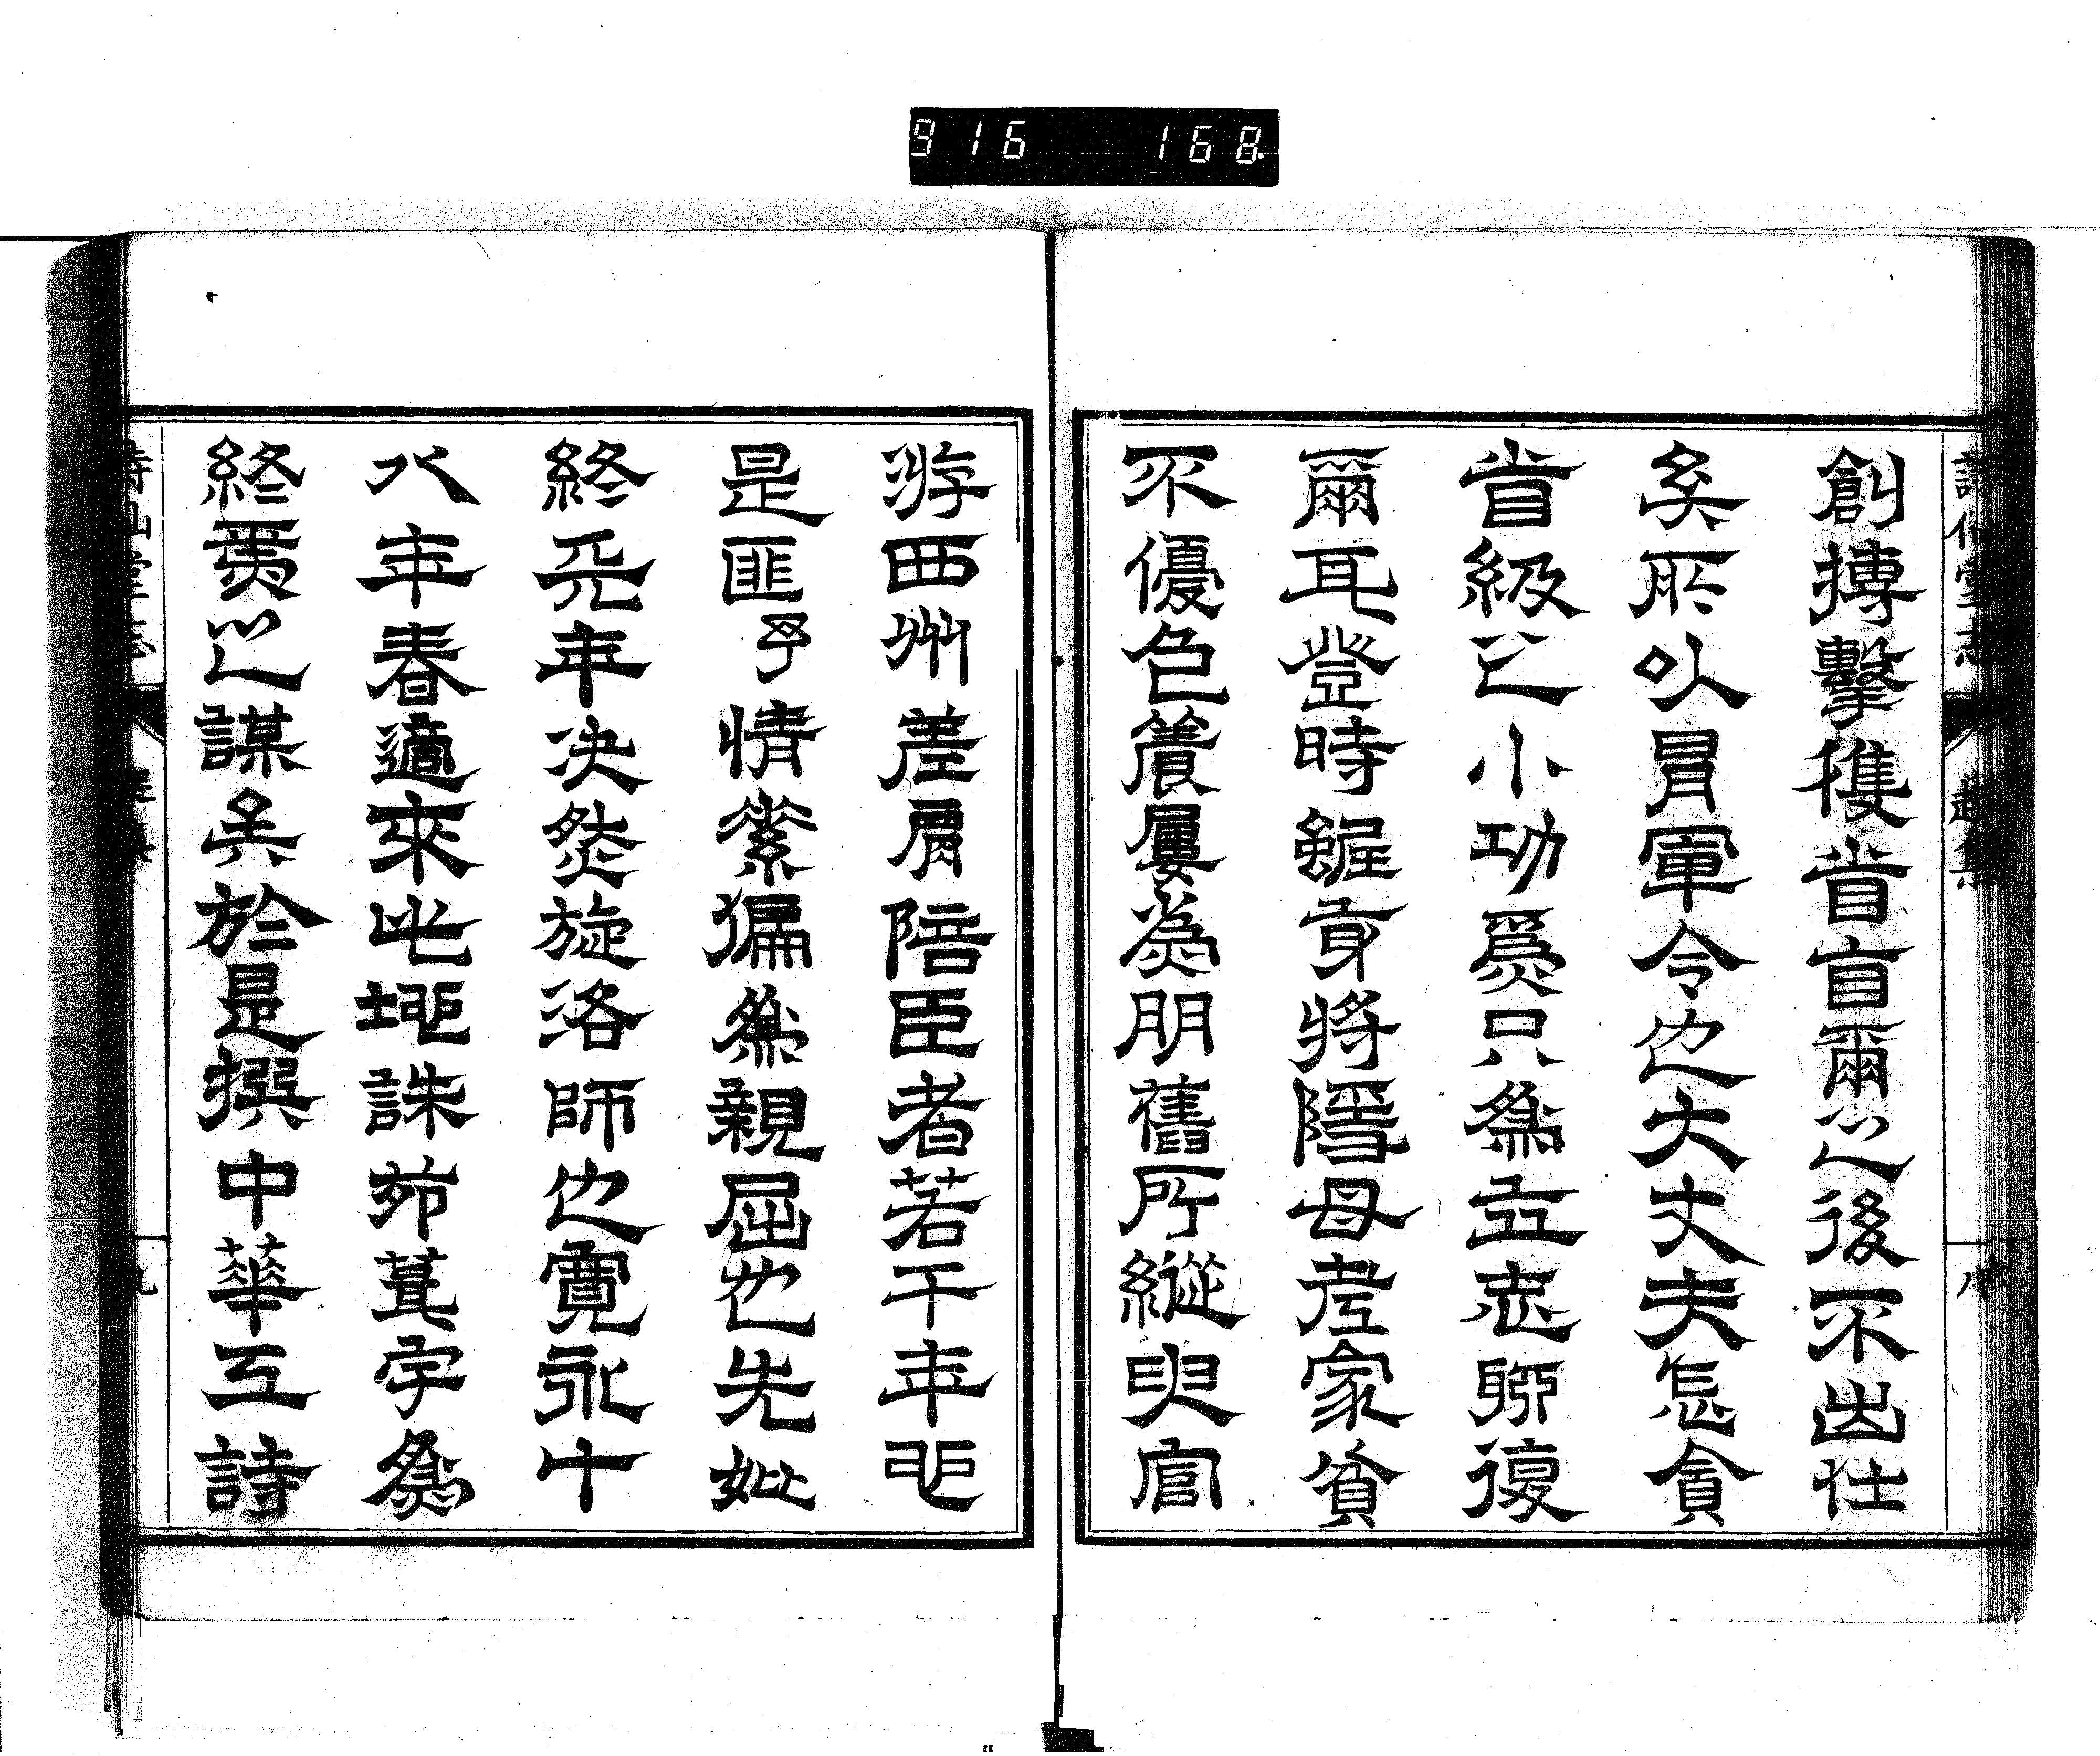 916 168.
創搏擊獲首盲爾之後不出仕
矣所以冒軍令也大丈夫怎貪
首級之小功爲只爲立志耶復
爾耳登時雖身將隱母老家貧
不優色養屢爲朋舊所縱臾宦
游西州差肩陪臣者若干年非
是匪予情素偏爲親屈也先妣
終元年决然旋洛師也寬永十
八年春適來此地誅茆葺宇爲
終焉之謀矣於是撰中華工詩
詩仙堂志
八